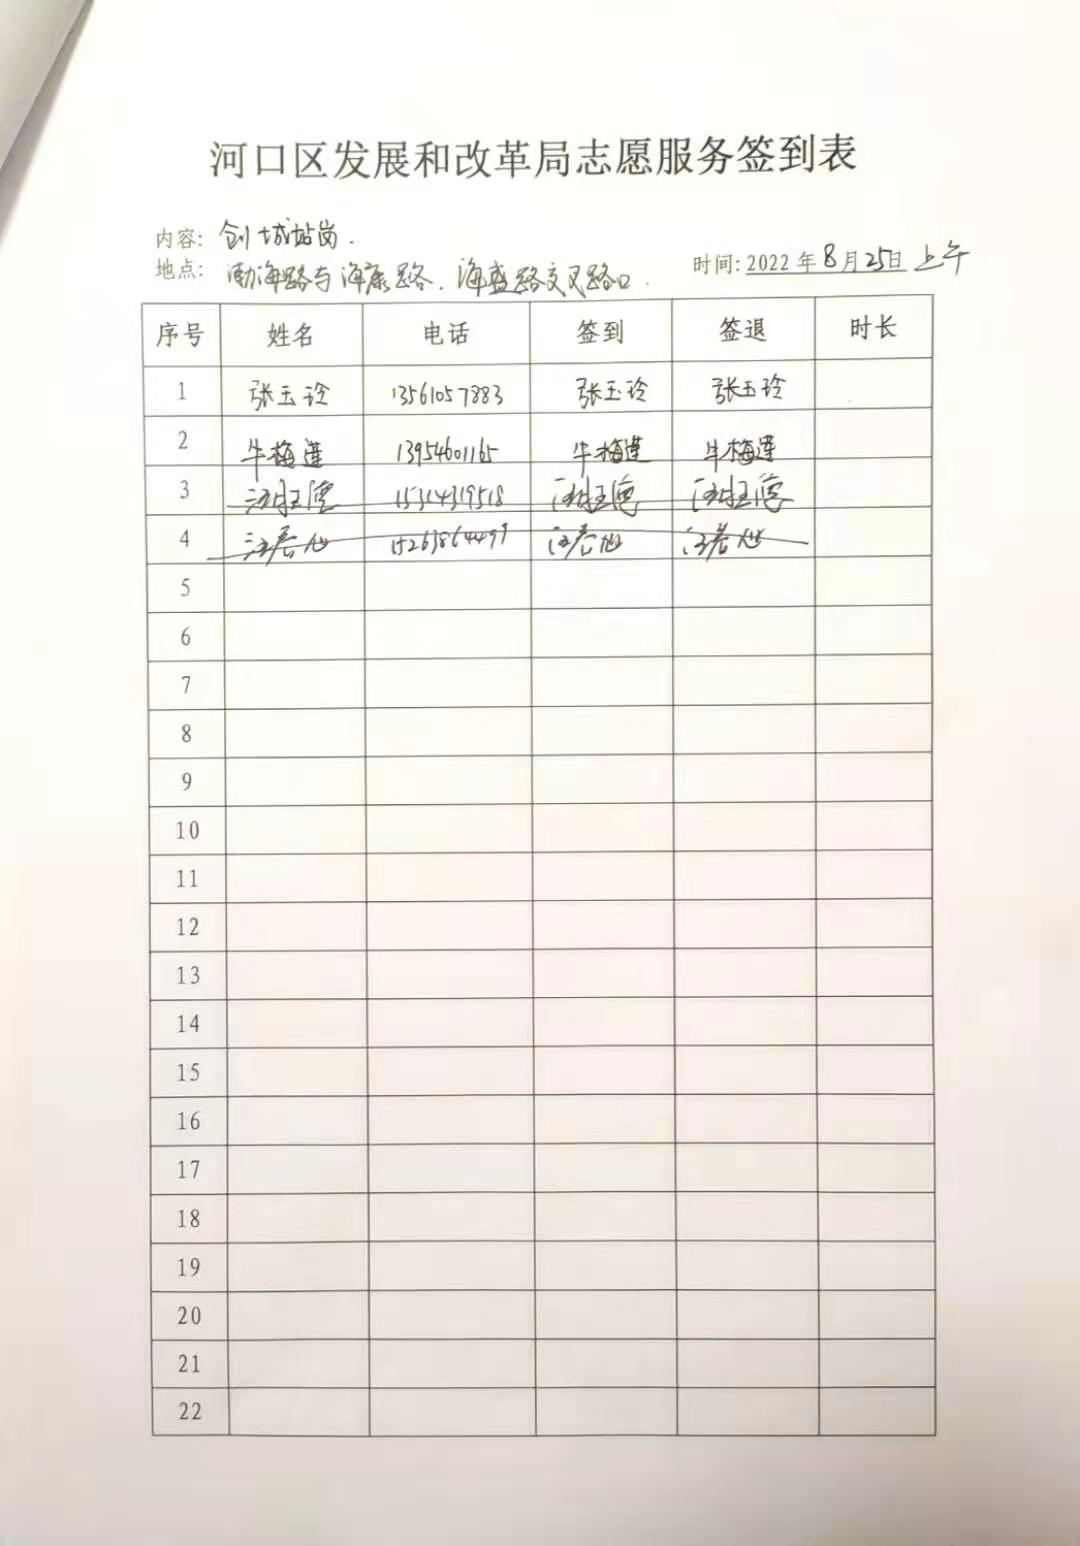 河口区发展和改革局志愿服务签到表
内容: 创城站岗.
地点: 渤海路与海康路、海盛路交叉路口.
时间: 2022年8月25日上午
序号 姓名 电话 签到 签退 时长
1 张玉玲 13561057883 张玉玲 张玉玲
2 牛梅莲 13954601165 牛梅莲 牛梅莲
3 15314319518
4 15263864499
5
6
7
8
9
10
11
12
13
14
15
16
17
18
19
20
21
22